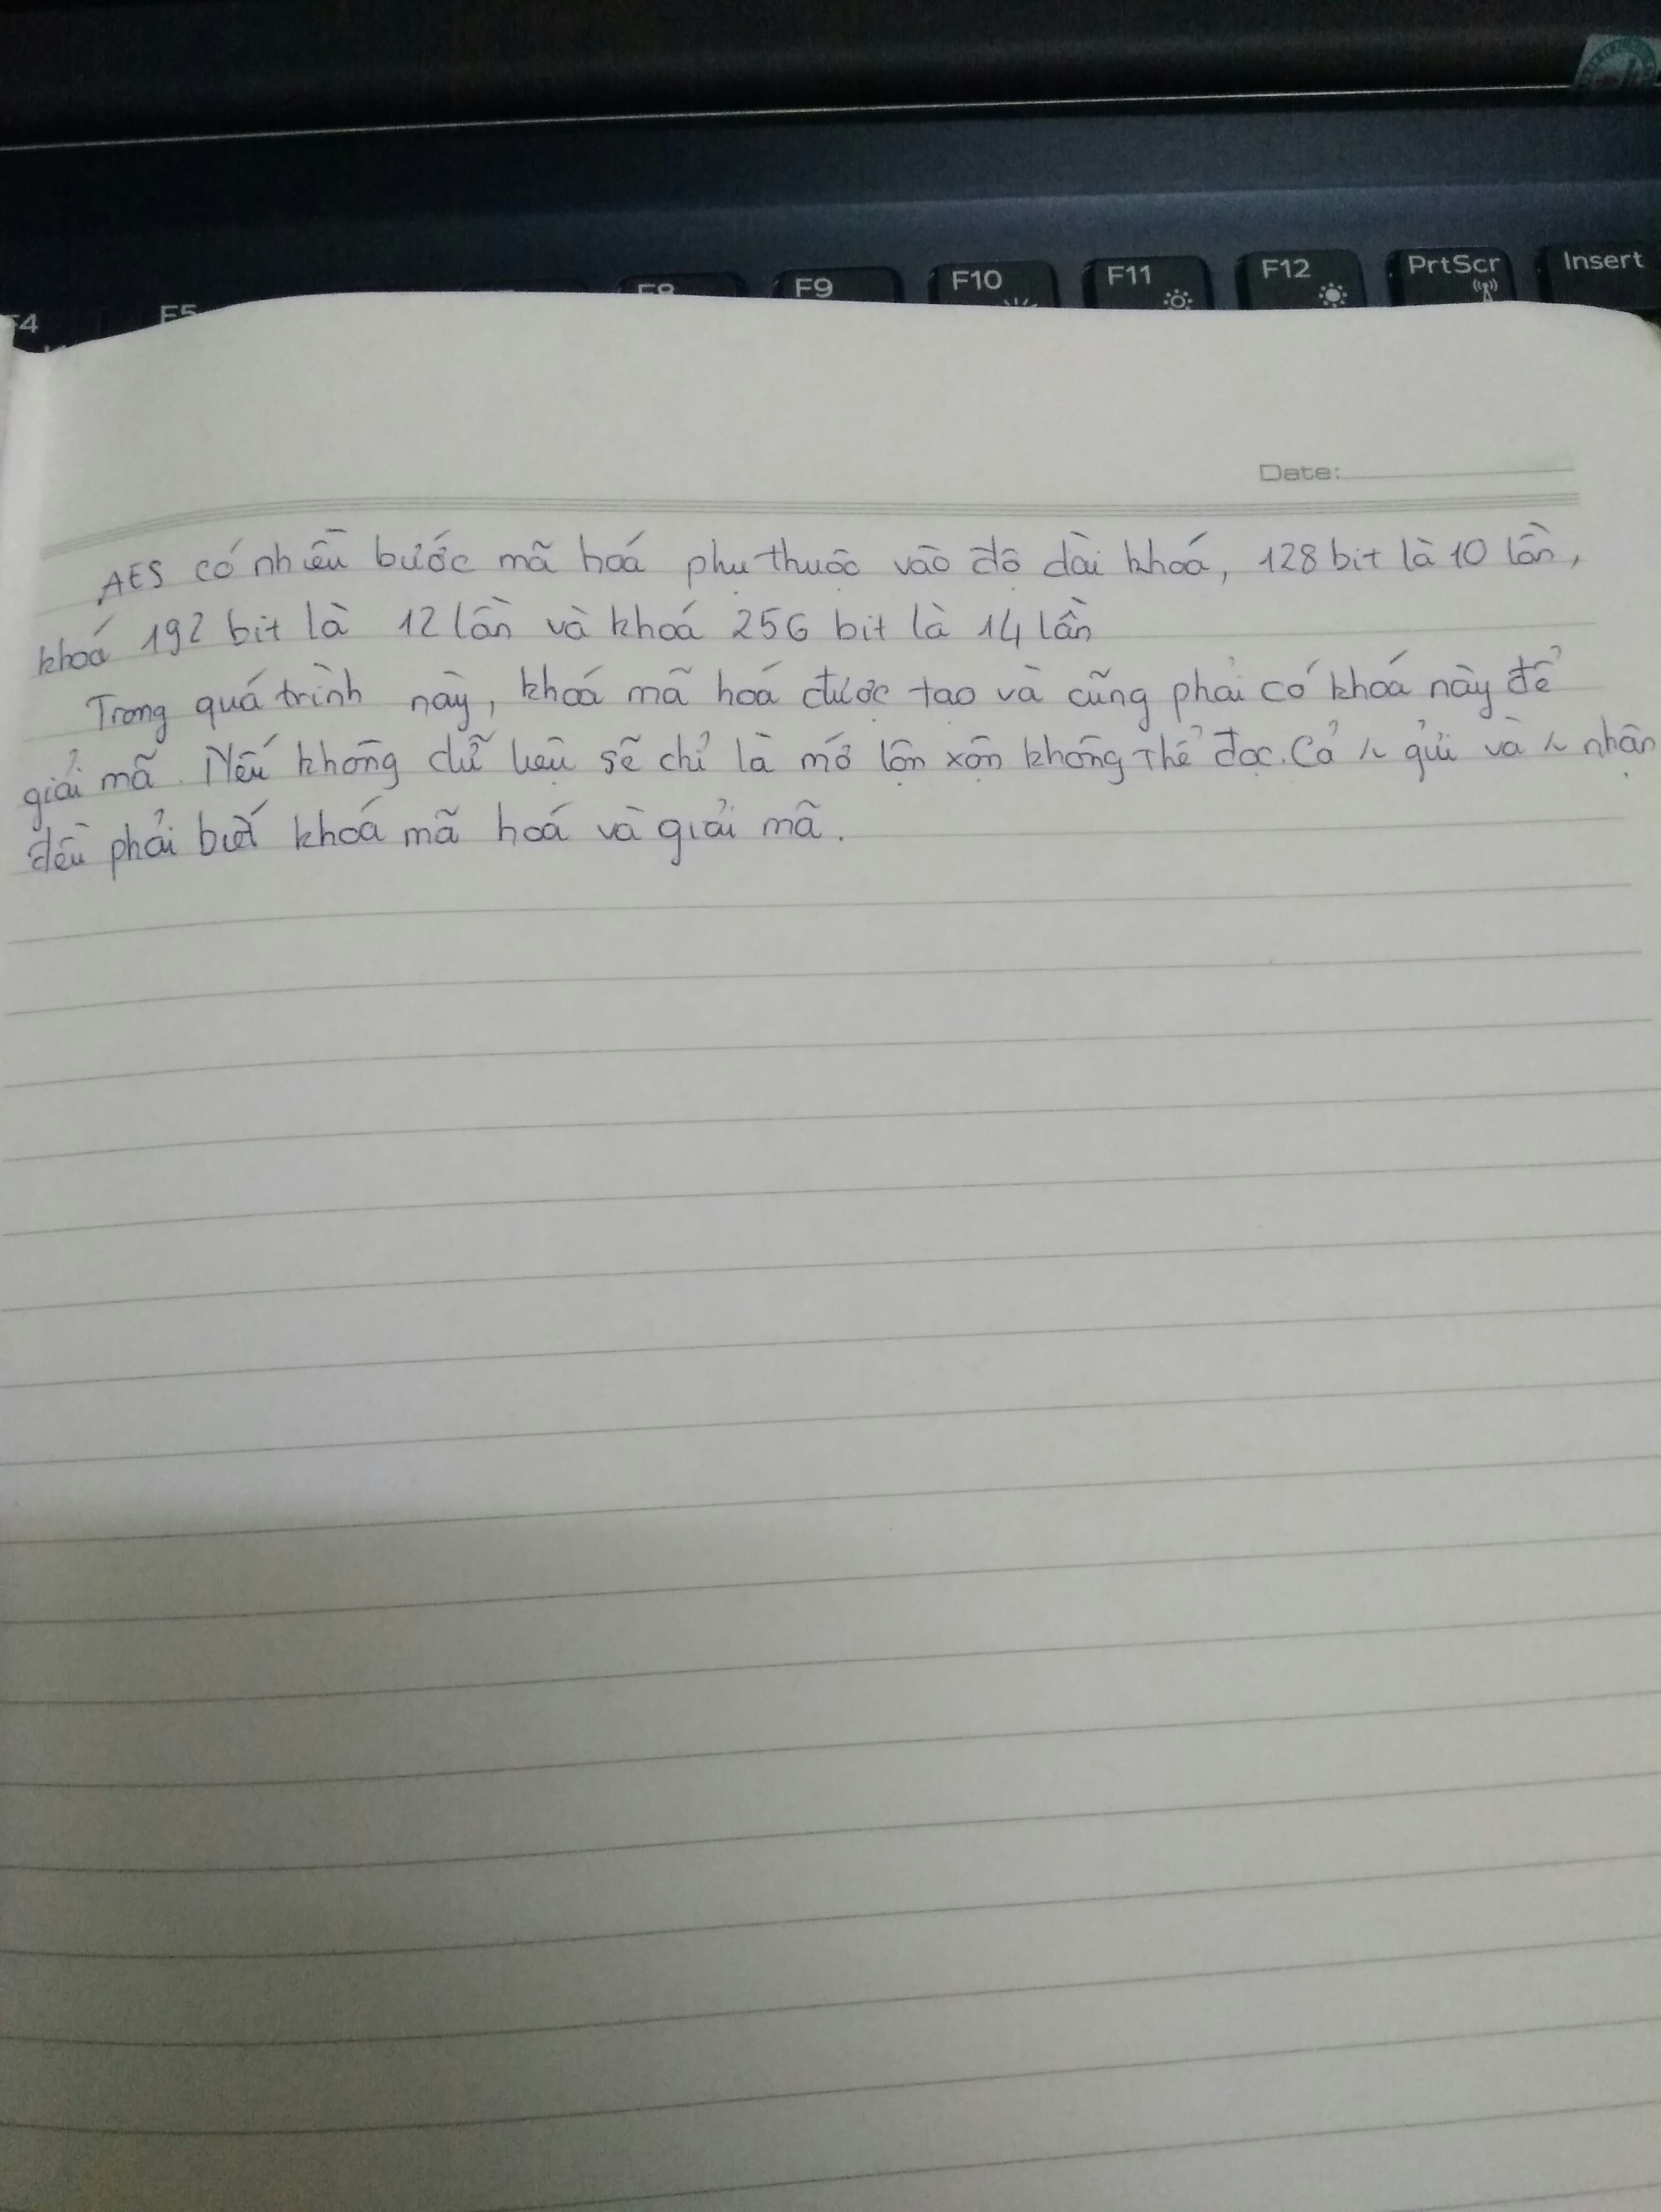 F4
F5
F8
F9
F10
F11
F12
PrtScr
Insert
Date:
AES có nhiều bước mã hoá phụ thuộc vào độ dài khoá, 128 bit là 10 lần,
khoá 192 bit là 12 lần và khoá 256 bit là 14 lần
Trong quá trình này, khoá mã hoá được tạo và cũng phải có khoá này để
giải mã. Nếu không dữ liệu sẽ chỉ là mớ lộn xộn không thể đọc. Cả gửi và nhận
đều phải biết khoá mã hoá và giải mã.